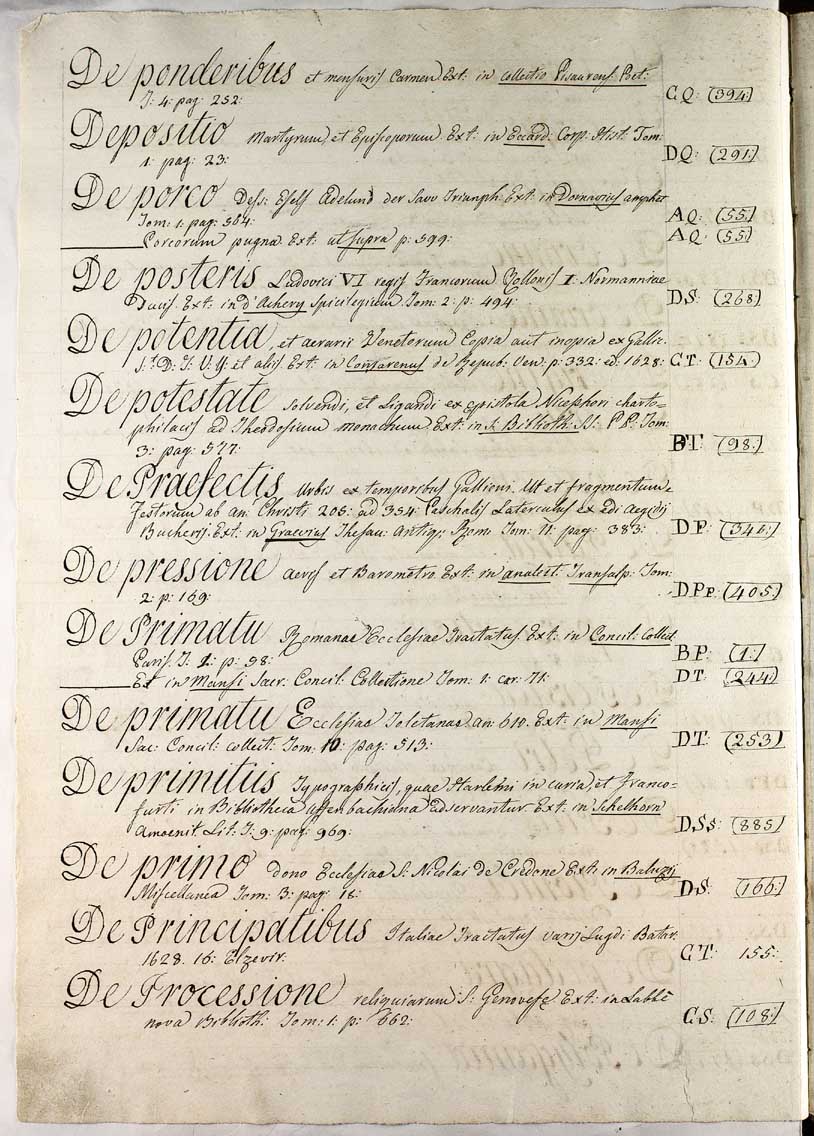 De ponderibus et mensuris Carmen Ext: in collectio Pisaurens: Poet:
T: 4: pag: 252: CQ: (394:)
Depositio Martyrum, et Episcoporum Ext: in Eccard: Corp: Hist: Tom:
1: pag: 23: DQ: (291:)
De porco Dess: Esels Adelund der Sauv Triumph: Ext: in Dornavius amphit
Tom: 1: pag: 584: AQ: (55:)
Porcorum pugna Ext: ut supra p: 599: AQ: (55:)
De posteris Ludovici VI regis Francorum Rollonis I: Normanniae
Ducis. Ext: in d'Achery Spicilegium Tom: 2: p: 494: DS: (268:)
De potentia, et aerarii Venetorum Copia aut inopia ex Gallia:
et alijs Ext: in Contarenus de Repub: Ven: p: 332: ed: 1628: CT: (154:)
De potestate solvendi, et Ligandi ex epistola Nicephori charto-
philacis ad Theodosium monachum Ext: in S: Biblioth: SS: PP: Tom:
3: pag: 577: BT: (98:)
De Praefectis Urbis ex temporibus Gallieni. Ut et fragmentum
Festorum ab an: Christi 205: ad 354: Paschalis Laterculus ex edi Aegidij
Bucherij: Ext: in Graevius Thesau: Antiq: Rom: Tom: 11: pag: 383: DP: (341:)
De pressione aeris et Barometro Ext: in analect: Transalp: Tom:
2: p: 169: DPp: (405:)
De Primatu Romanae Ecclesiae Tractatus. Ext: in Concil: Collect
Paris. T: 1: p: 58: BP: (1:)
Ex in Mansi Sacr: Concil: Collectione Tom: 1: car: 71: DT: (244:)
De primatu Ecclesiae Toletanae an: 610. Ext: in Mansi
Sac: Concil: collect: Tom: 10: pag: 513: DT: (253:)
De primitiis Typographicis, quae Harlemi in curia, et Franco-
furti in Bibliotheca Uffenbachiana adservantur Ext: in Schelhorn
Amoenit. Lit: T: 9: pag: 969: DSs: (885:)
De primo dono Ecclesiae S: Nicolai de Credone Ext: in Baluzij
Miscellanea Tom: 3: pag: 18: DS: (166:)
De Principatibus Italiae Tractatus varij Lugdi Batav:
1628. 16: Elzevir. CT: 155:
De Processione reliquiarum S: Genovefe Ext: in Labbé
nova Biblioth: Tom: 1: p: 662: CS: (108:)